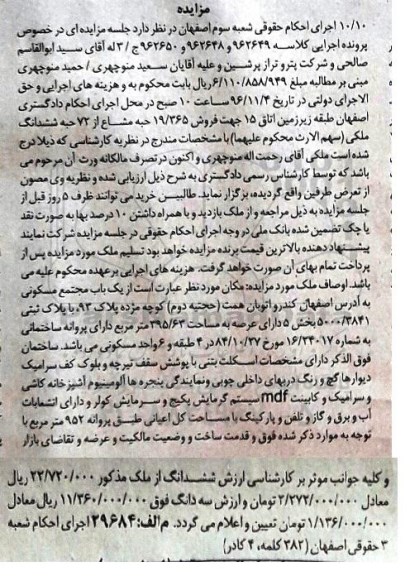 مزایده
۱۰/۱۰ اجرای احکام حقوقی شعبه سوم اصفهان در نظر دارد جلسه مزایده ای در خصوص
پرونده اجرایی کلاسه ۹۶۲۶۴۹ و ۹۶۲۶۴۸ و ۹۶۲۶۵۰ ج / ۳ له آقای سید ابوالقاسم
صالحی و شرکت پترو تراز پرشین و علیه آقایان سعید منوچهری / حمید منوچهری
مبنی بر مطالبه مبلغ ۶/۱۱۰/۸۵۸/۹۴۹ ریال بابت محکوم به و هزینه های اجرایی و حق
الاجرای دولتی در تاریخ ۹۶/۱۱/۴ ساعت ۱۰ صبح در محل اجرای احکام دادگستری
اصفهان طبقه زیرزمین اتاق ۱۵ جهت فروش ۱۹/۳۶۵ حبه مشاع از ۷۲ حبه ششدانگ
ملکی (سهم الارث محکوم علیهما) با مشخصات مندرج در نظریه کارشناسی که ذیلا درج
شده است ملکی آقای رحمت اله منوچهری و اکنون در تصرف مالکانه ورث آن مرحوم می
باشد که توسط کارشناس رسمی دادگستری به شرح ذیل ارزیابی شده و نظریه وی مصون
از تعرض طرفین واقع گردیده، برگزار نماید. طالبین خرید می توانند ظرف ۵ روز قبل از
جلسه مزایده به ذیل مراجعه و از ملک بازدید و با همراه داشتن ۱۰ درصد بها به صورت نقد
یا چک تضمین شده بانک ملی در وجه اجرای احکام حقوقی در جلسه مزایده شرکت نمایند
پیشنهاد دهنده بالاترین قیمت برنده مزایده خواهد بود تسلیم ملک مورد مزایده پس از
پرداخت تمام بهای آن صورت خواهد گرفت. هزینه های اجرایی بر عهده محکوم علیه می
باشد. اوصاف ملک مورد مزایده: مکان مورد نظر عبارت است از یک باب مجتمع مسکونی
به آدرس اصفهان کندرو اتوبان همت (حجتیه دوم) کوچه مژده پلاک ۹۳، با پلاک ثبتی
۵۰۰۰/۳۸۴۱ بخش ۵ دارای عرصه به مساحت ۳۹۵/۶۳ متر مربع دارای پروانه ساختمانی
به شماره ۱۶/۲۳۰۱۷ مورخ ۸۴/۱۰/۲۷ در ۴ طبقه و ۶ واحد مسکونی می باشد. ساختمان
فوق الذکر دارای مشخصات اسکلت بتنی با پوشش سقف تیرچه و بلوک کف سرامیک
دیوارها گچ و رنگ دربهای داخلی چوبی و نمایندگی پنجره ها آلومینیوم آشپزخانه کاشی
و سرامیک و کابینت mdf سیستم گرمایش پکیج و سرمایش کولر و دارای انشعابات
آب و برق و گاز و تلفن و پارکینگ با مساحت کل اعیانی طبق پروانه ۹۵۲ متر مربع با
توجه به موارد ذکر شده فوق و قدمت ساخت و وضعیت مالکیت و عرصه و تقاضای بازار
و کلیه جوانب موثر بر کارشناسی ارزش ششدانگ از ملک مذکور ۲۲/۷۲۰/۰۰۰ ریال
معادل ۲/۲۷۲/۰۰۰/۰۰۰ تومان و ارزش سه دانگ فوق ۱۱/۳۶۰/۰۰۰/۰۰۰ ریال معادل
۱/۱۳۶/۰۰۰/۰۰۰ تومان تعیین و اعلام می گردد. م الف: ۲۹۶۸۴ اجرای احکام شعبه
۳ حقوقی اصفهان (۳۸۲ کلمه، ۴ کادر)